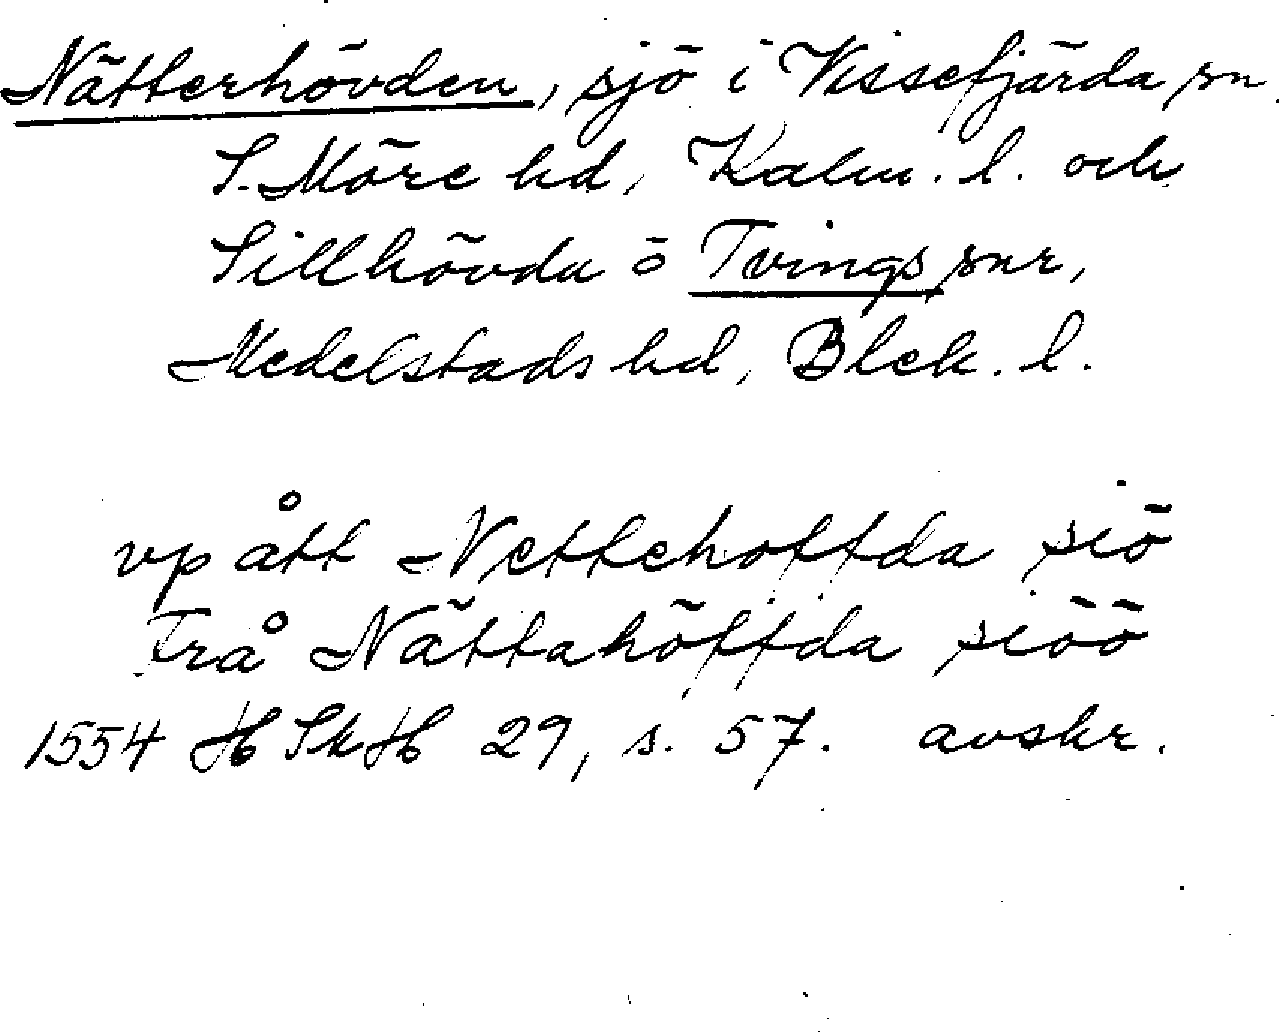 Nätterhövden, sjö i Vissefjärda sn
S. Möre hd, Kalm. l. och
Sillhövda o Tvings snr,
Medelstads hd, Blek. l.
vp ått Nettehoffda siö
Frå Nättahöffda siöö
1554 HSkH 29, s. 57. avskr.